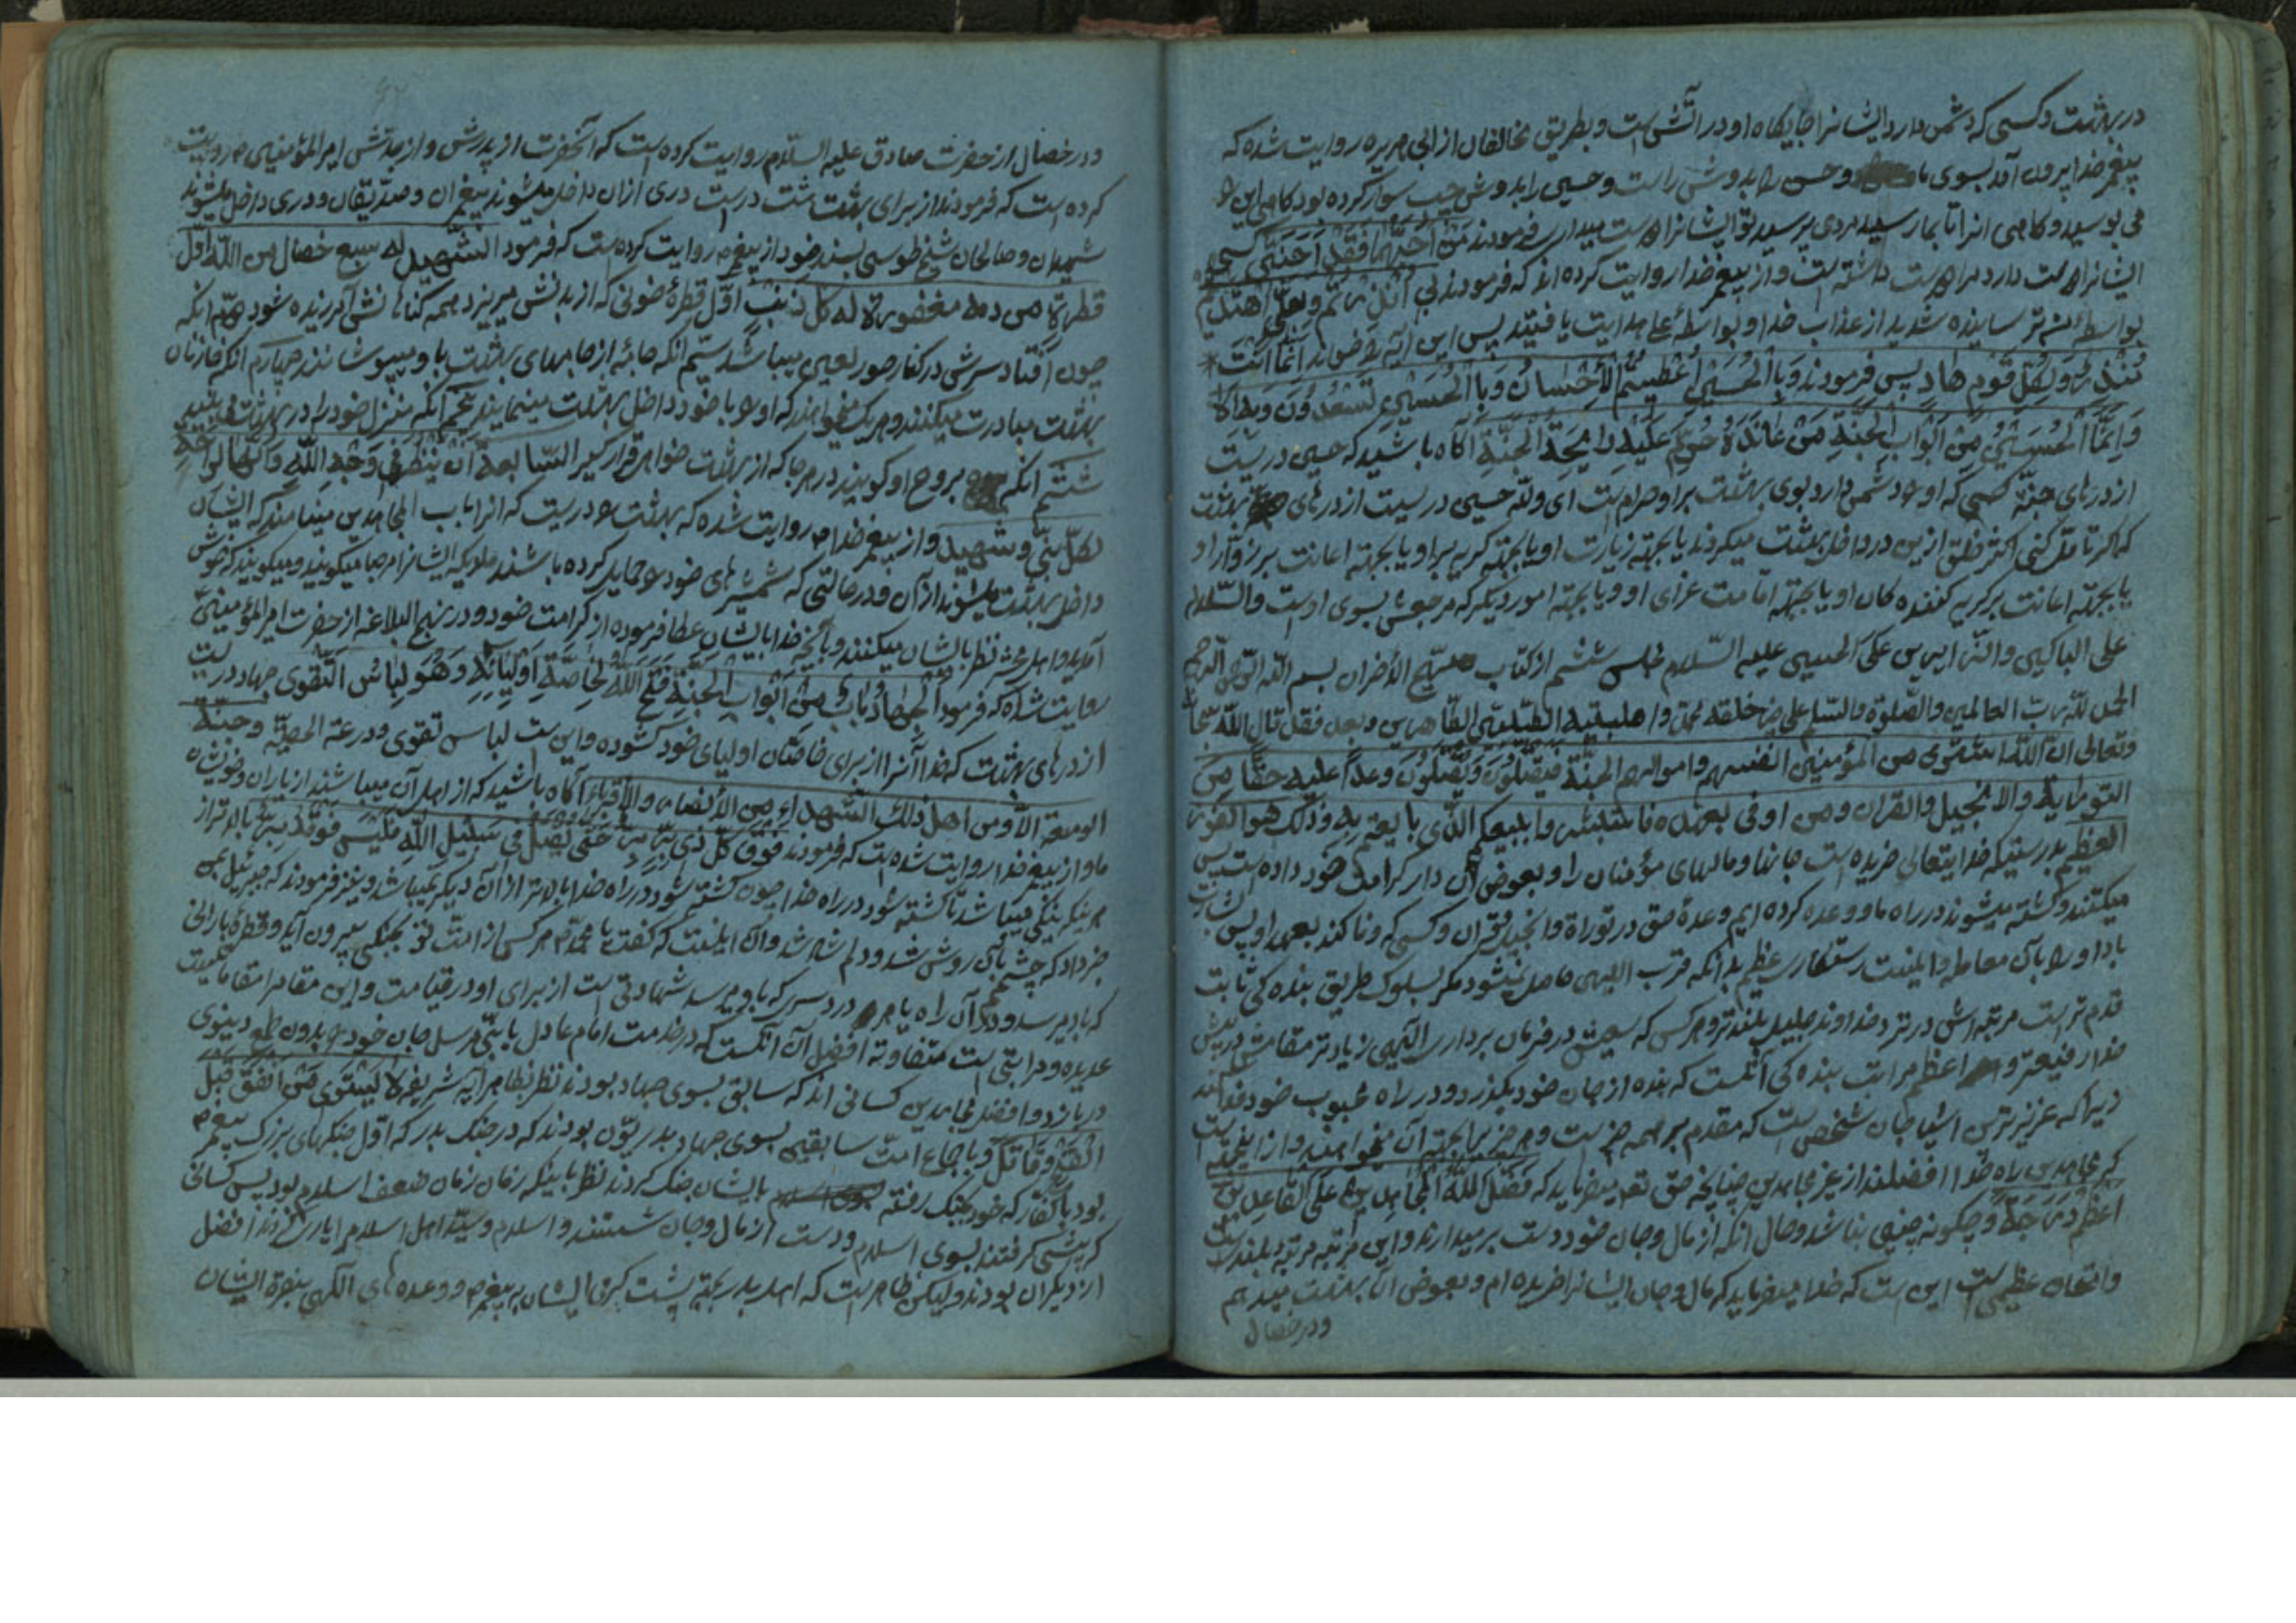 در بهشت و کسی که دشمن دارد ایشانرا جایگاه او در آتش است و بطریق مخالفان از ابی هریره روایت شده که
پیغمبر خدا بیرون آمد بسوی ما و حسن را بدوش راست و حسین را بدوش چپ سوار کرده بود گاهی این را
می بوسید و گاهی انرا تا بما رسید مردی پرسید تو ایشانرا دوست میداری فرمودند من احبهما فقد احبنی کسی
ایشانرا دوست دارد مرا دوست داشته است و از پیغمبر خدا روایت کرده اند که فرمودند بی انذرتم و بعلی اهتدیتم
بواسطهٔ من ترسانیده شدید از عذاب خدا و بواسطهٔ علی هدایت یافتید پس این آیه را خواند انما انت
منذر و لکل قوم هاد پس فرمودند و بالحسن اعطیتم الاحسان و بالحسین تسعدون و به
و انما الحسین من ابواب الجنة من عانده حرم علیه رایحة الجنة آگاه باشید که حسین دریست
از درهای جنة کسی که او را دشمن دارد بوی بهشت بر او حرام است ای ولله حسین دریست از درهای بهشت
که اگر تامل کنی اکثر خلق ازین در داخل بهشت میگردند یا بجهته زیارت او یا بجهته گریه بر او یا بجهته اعانت بر زوار او
یا بجهته اعانت بر گریه کننده کان او یا بجهته اقامت عزای او و یا بجهته امور دیگر که مرجعش بسوی اوست والسّلام
علی الباکین و الزایرین علی الحسین علیه السّلام مجلس ششم از کتاب مهیج الاحزان بسم الله الرّحمن الرّحیم
الحمد لله رب العالمین والصّلوة والسّلام علی خیر خلقه محمد و اهلبیته الطیّبین الطّاهرین و بعد فقد قال الله سبحانه
وتعالی ان الله اشتری من المؤمنین انفسهم و اموالهم الجنّة فیقتلون و یقتلون وعداً علیه حقّاً فی
التوراية والانجیل والقران و من اوفی بعهده فاستبشروا ببیعکم الّذی بایعتم به و ذلک هو الفوز
العظیم بدرستیکه خدایتعالی خریده است جانها و مالهای مؤمنان را و بعوض آن دار کرامت خود داده است پس
میکشند و کشته میشوند در راه ما و وعده کرده ایم وعدهٔ حق در توراة و انجیل و قران و کسی که وفا کند بعهد او پس بشارت
باد او را بآن معامله و اینست رستکاری عظیم بدانکه قرب الهی حاصل نمیشود مگر بسلوک طریق بنده کی ثابت
قدم تر است مرتبه اش در نزد خداوند جلیل بلند تر و هر کس که سعیش در فرمان برداری الهی زیاد تر مقامش در پیش
خدا رفیعتر و اعظم مراتب بنده کی آنست که بنده از جان خود بگذرد و در راه محبوب خود فدا کند
زیرا که عزیزترین اشیا جان شخص است که مقدم بر همه چیز است و هر چیز را بجهته آن میخواهند و از اینجهت
که مجاهدین راه خدا افضلند از غیر مجاهدین چنانچه حق تعم میفرماید که فضل الله المجاهدین علی القاعدین
اعظم درجة و چگونه چنین نباشد و حال آنکه از مال و جان خود دست بر میدارند و این مرتبه مرتبهٔ بلندیست
و امتحان عظیمی است این است که خدا میفرماید که مال و جان ایشانرا خریده ام و بعوض آن بهشت میدهم
و در خصال
و در خصال از حضرت صادق علیه السّلام روایت کرده است که آنحضرت از پدرش و از جدّش امیر المؤمنین ع روایت
کرده است که فرمودند از برای بهشت هشت در است دری از ان داخل میشوند پیغمبران و صدّیقان و دری داخل میشوند
شهیدان و صالحان شیخ طوسی بسند خود از پیغمبر روایت کرده است که فرمود الشّهید له سبع خصال من الله اوّل
قطرة من دمه مغفور له کل ذنب اوّل قطرهٔ خونی که از بدنش میریزد همه گناهانش آمرزیده شود دویّم انکه
چون افتاد سرش در کنار حور العین میباشد سیّم انکه جامهٔ از جامهای بهشت باو میپوشانند چهارم انکه خازنان
بهشت مبادرت میکنند و هر یک میخواهند که او را با خود داخل بهشت مینمایند پنجم انکه منزل خود را در بهشت میبیند
ششم انکه بروح او گویند در هر جا که از بهشت خواهی قرار گیر السّابعة ان ینظر فی وجه الله و انها لراحة
لکل نبی و شهید و از پیغمبر خدا روایت شده که بهشت را دریست که انرا باب المجاهدین مینامند که ایشان
داخل بهشت میشوند از آن در حالتی که شمشیرهای خود را حمایل کرده باشند ملایکه ایشانرا مرحبا میگویند و میگویند که خوش
آمدید و اهل محشر نظر بایشان میکنند و بآنچه خدا بایشان عطا فرموده از کرامت خود و در نهج البلاغه از حضرت امیر المؤمنین
روایت شده که فرمود الجهاد باب من ابواب الجنة فتح الله لخاصة اولیائه و هو لباس التقوی جهاد دریست
از درهای بهشت که خدا آنرا از برای خاصّان اولیای خود گشوده و این است لباس تقوی و درعة الحصینه و جنة
الوسیعة الا و من اهل ذلك الشّهداء من الانصار و الاقرباء آگاه باشید که از اهل آن میباشند از یاران و خویشان
ما و از پیغمبر خدا روایت شده است که فرمودند فوق کل ذی برّ برّ حتّی یقتل فی سبیل الله فلیس فوقه برّ بالاتر از
هر نیکی نیکی میباشد تا کشته شود در راه خدا چون کشته شود در راه خدا بالاتر از آن دیگر نمیباشد و نیز فرمودند که جبرئیل بمن
خبر داد که چشمم بآن روشن شد و دلم شاد شد و آن اینست که گفت یا محمد هر کس از امت تو بجنگی بیرون آید و قطرهٔ بارانی
که باو میرسد در آن راه یا هر درد سری که باو میرسد شهادتی است از برای او در قیامت و این مقام را مقامات
عدیده و مراتبی است متفاوته افضل آن آنست که در خدمت امام عادل یا نبی مرسل جان خود را بدون طمع دنیوی
در بازد و افضل مجاهدین کسانی اند که سابق بسوی جهاد بودند نظر بظاهر آیه شریفه لا یستوی من انفق قبل
الفتح و قاتل و باجماع امت سابقین بسوی جهاد بدریّون بودند که در جنگ بدر که اوّل جنگهای بزرگ پیغمبر
بود با کفار که خود بجنگ رفته بایشان جنگ کردند نظر باینکه زمان زمان ضعف اسلام بود پس کسانی
که پیشی گرفتند بسوی اسلام و دست از مال و جان شستند و اسلام و سیّد اهل اسلام را یاری کردند افضل
از دیگران بودند ولیکن ظاهر است که اهل بدر بجهة پشت گرمی ایشان به پیغمبر و وعده های الهی بنصرة ایشان